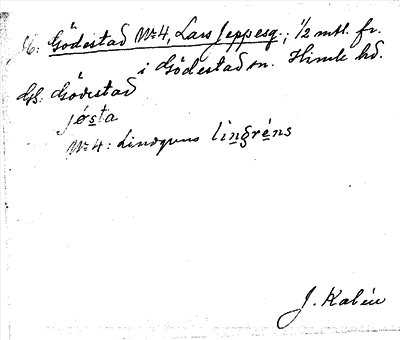 Gödestad No 4, Lars Jeppesg.; 1/2 mtl. fr.
i Gödestad sn. Himle hd.
Gb. Gödestad
jøsta
No 4: Lindgrens lingréns
J. Kalén